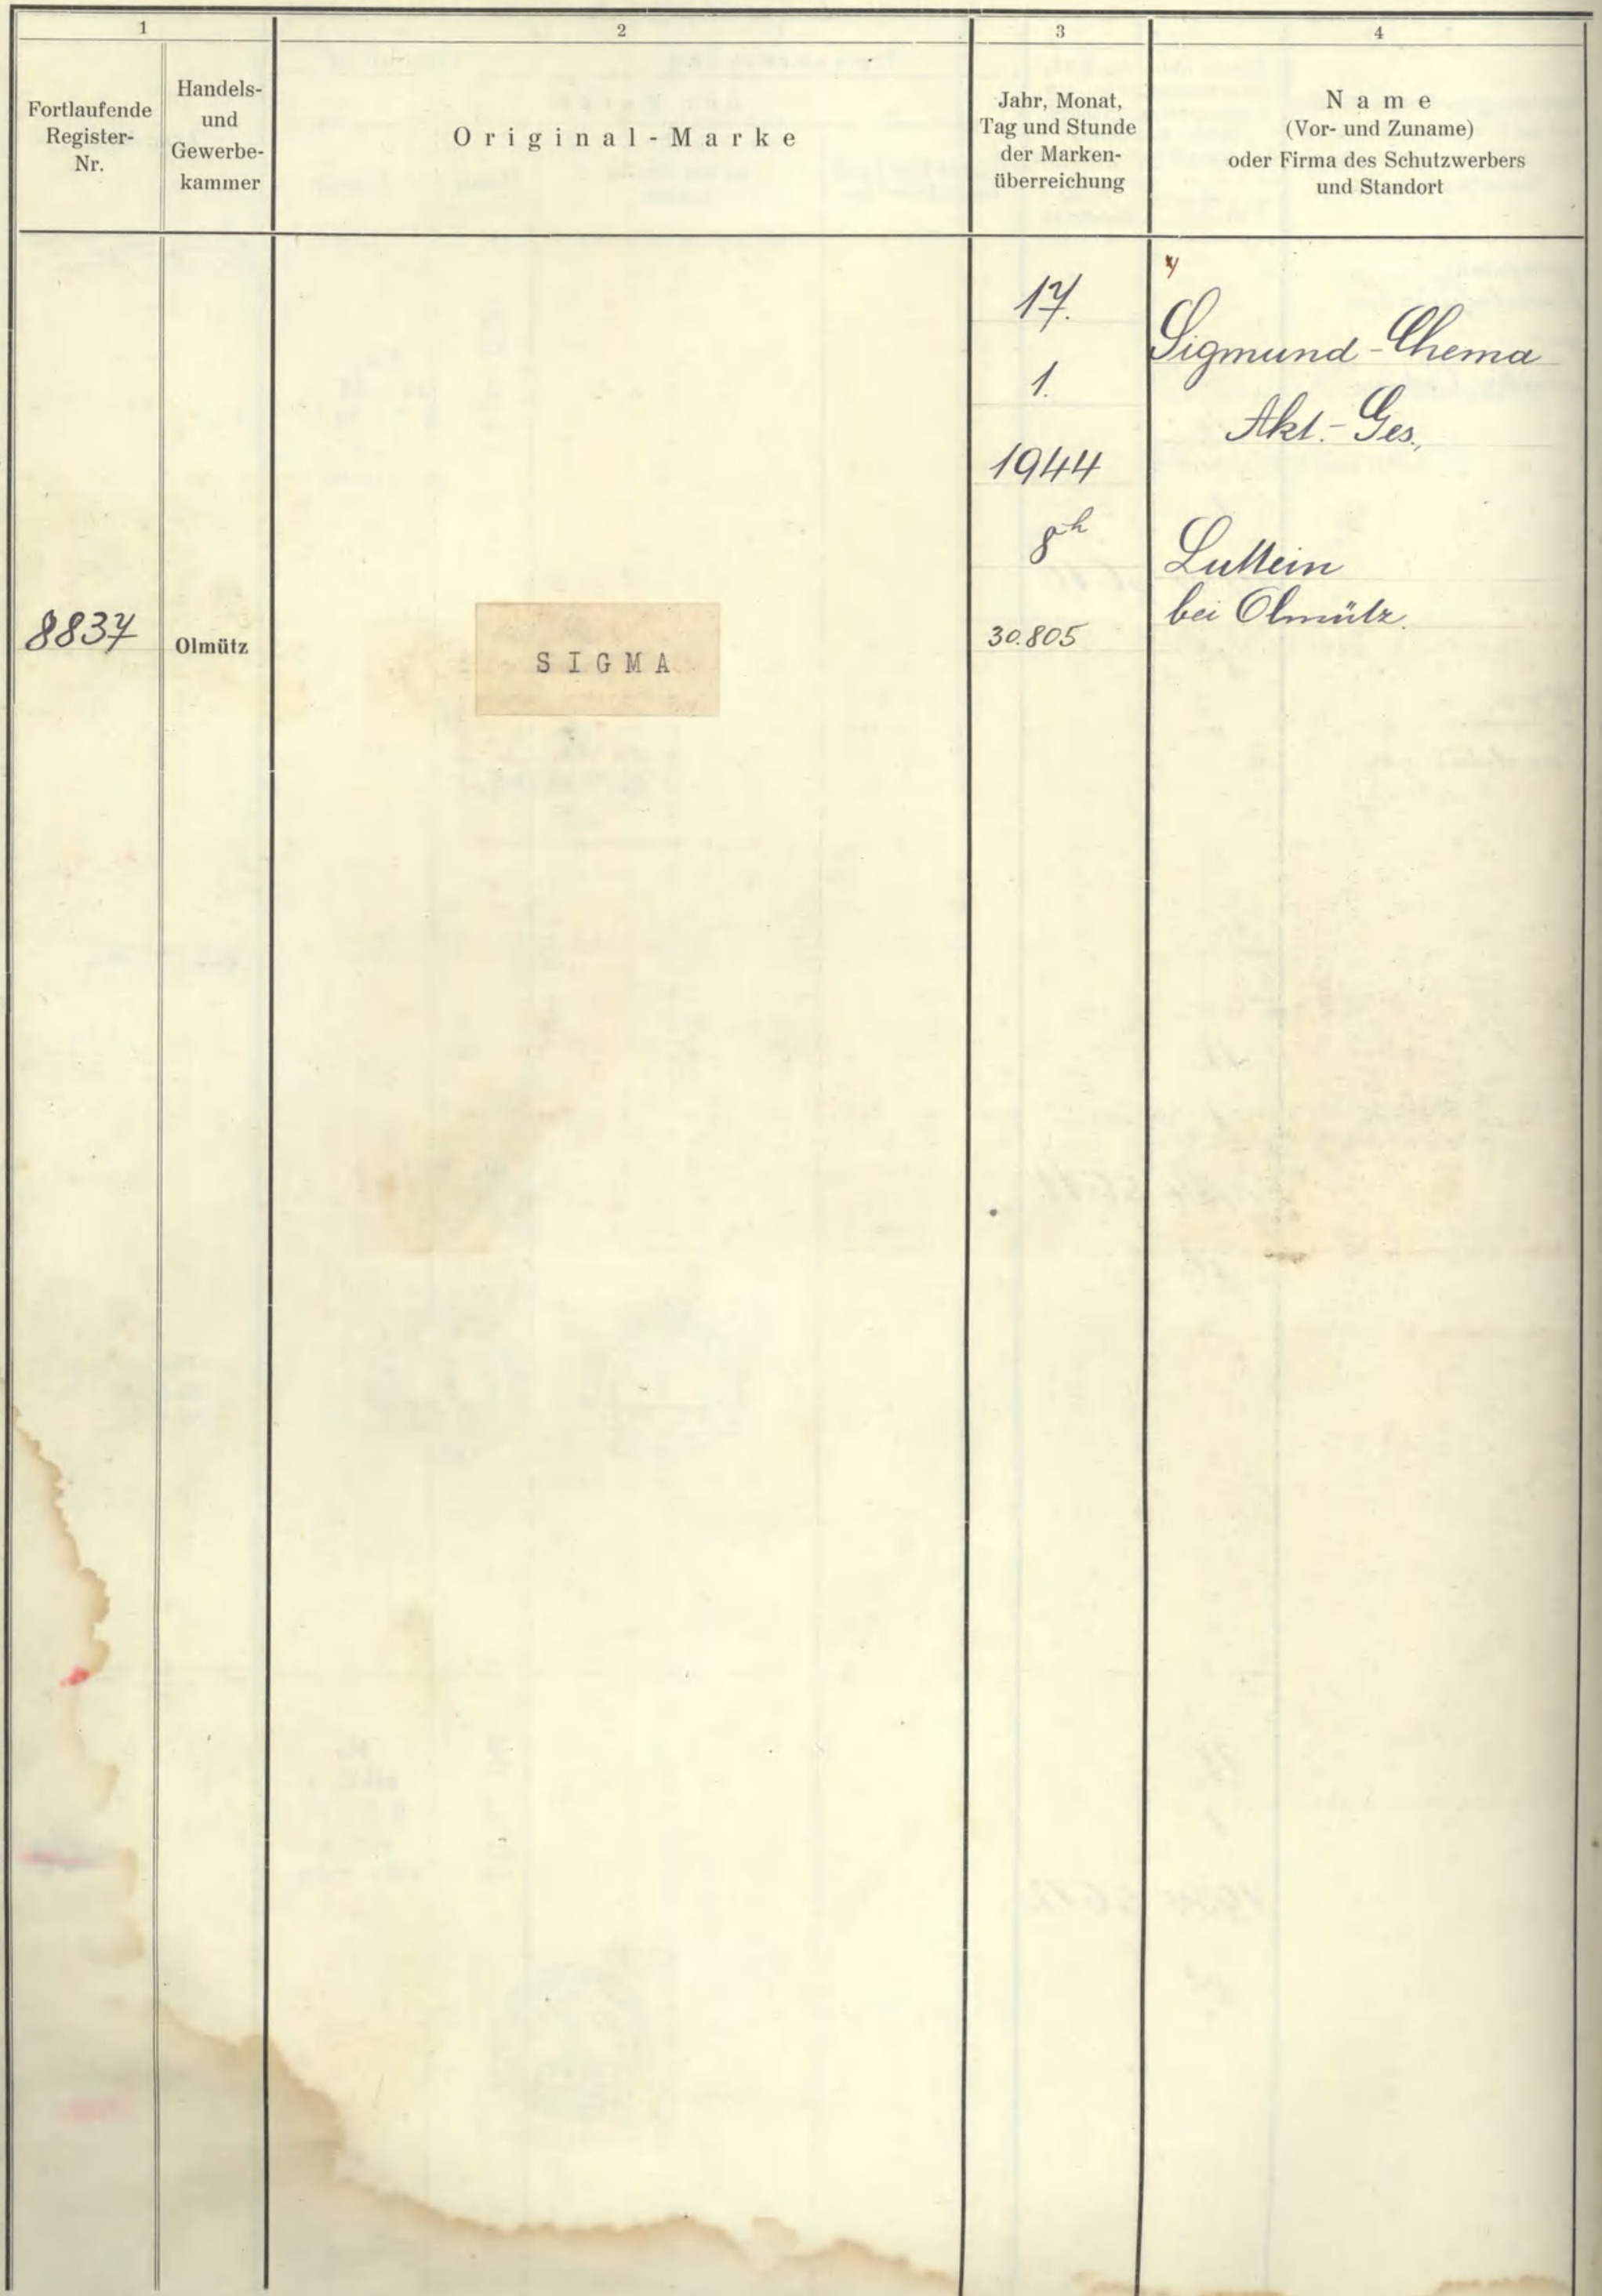 1
2
3
4
Fortlaufende
Register-
Nr.
Handels-
und
Gewerbe-
kammer
Original-Marke
Jahr, Monat,
Tag und Stunde
der Marken-
überreichung
Name
(Vor- und Zuname)
oder Firma des Schutzwerbers
und Standort
8837
Olmütz
SIGMA
17.
1.
1944
8h
30.805
Sigmund-Chema
Akt.-Ges.,
Luttein
bei Olmütz.